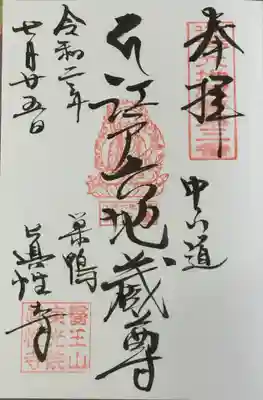 奉拝
中山道
江戸六地蔵尊
巣鴨
眞性寺
令和二年
七月廿五日
醫王山
東光院
眞性寺